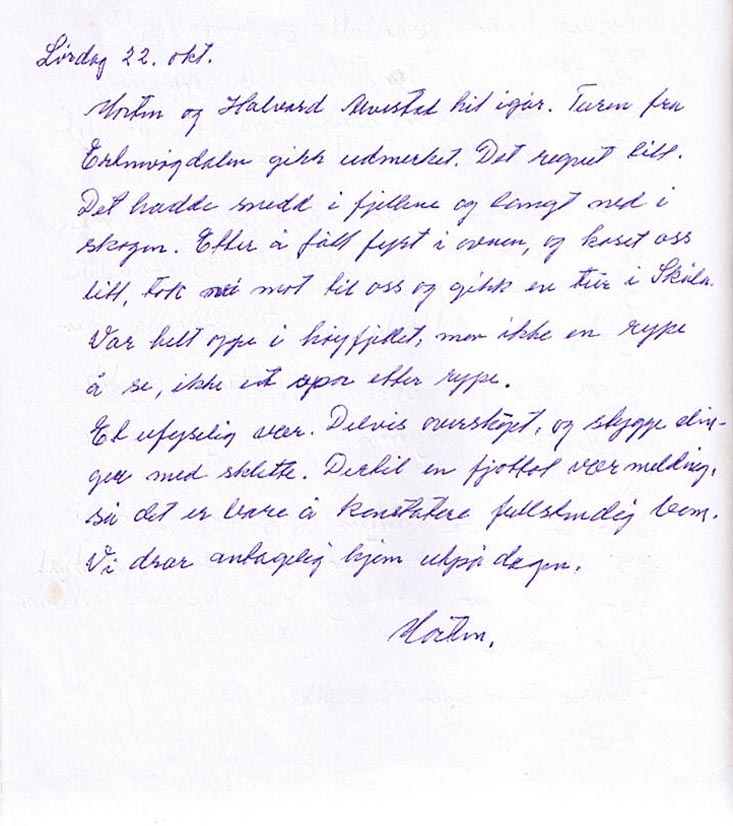 Lørdag 22. okt.
Morten og Halvard hit igår. Turen fra
gikk udmerket. Det regnet litt.
Det hadde snedd i fjellene og langt ned i
skogen. Etter å fått fyrt i ovnen, og koset oss
litt, tok vi mot til oss og gikk en tur i Skåla.
Var helt oppe i høyfjellet, men ikke en rype
å se, ikke et spor etter rype.
Et ufyselig vær. Delvis overskyet, og stygge elin-
ger med sletta. Dertil en fjottet værmelding,
så det er bare å konstatere fullstendig bom.
Vi drar antagelig hjem utpå dagen.
Morten.